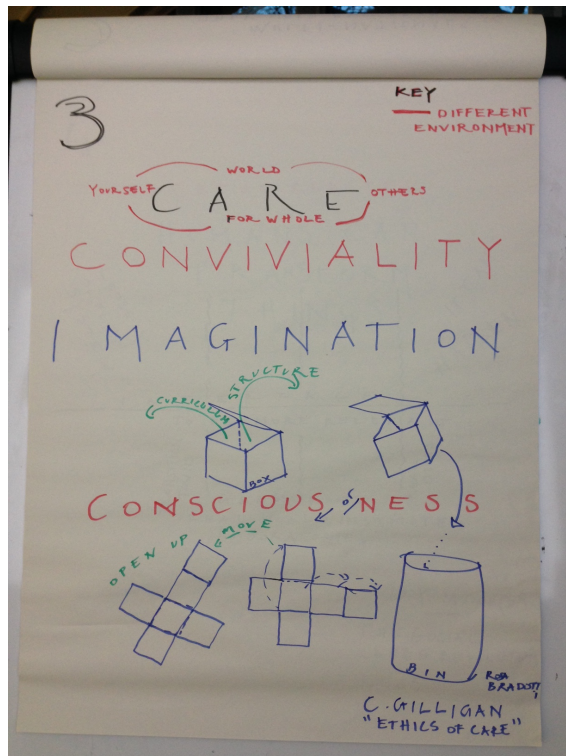 3
KEY
DIFFERENT
ENVIRONMENT
WORLD
YOURSELF CARE OTHERS
FOR WHOLE
CONVIVIALITY
IMAGINATION
CURRICULUM STRUCTURE
BOX
CONSCIOUSNESS
OR
OPEN UP MOVE
BIN
C. GILLIGAN
"ETHICS OF CARE"